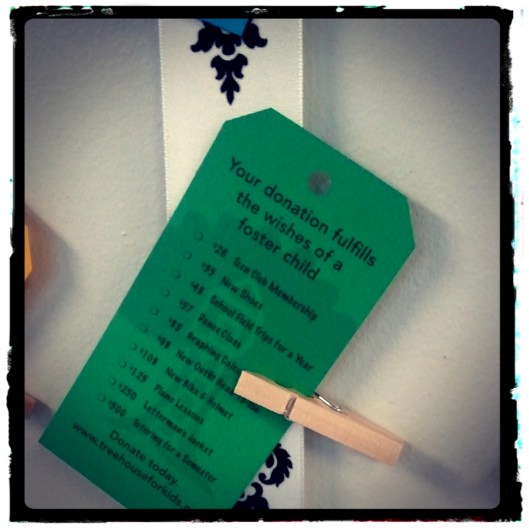 Your donation fulfills
the wishes of a
foster child
$28 Teen Club Membership
$35 New Shoes
$48 School Field Trips for a Year
$57 Dance Class
Graphing
New Outfit
$108 New Bike & Helmet
$125 Piano Lessons
$250 Letterman's Jacket
$500 Tutoring for a Semester
Donate today.
www.treehouseforkids.